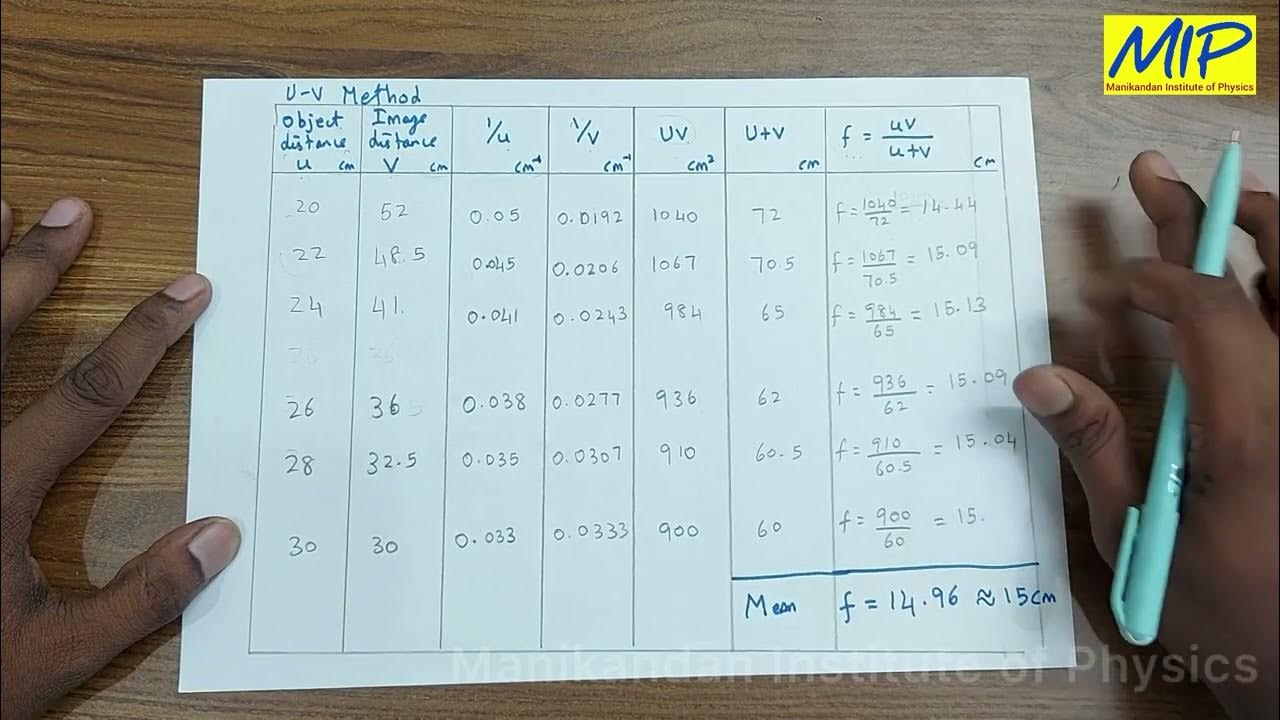 MIP
Manikandan Institute of Physics
U-V Method
Object distance u cm | Image distance V cm | 1/u cm⁻¹ | 1/V cm⁻¹ | UV cm² | U+V cm | f = uv/u+v cm
20 | 52 | 0.05 | 0.0192 | 1040 | 72 | f = 1040/72 = 14.44
22 | 48.5 | 0.045 | 0.0206 | 1067 | 70.5 | f = 1067/70.5 = 15.09
24 | 41. | 0.041 | 0.0243 | 984 | 65 | f = 984/65 = 15.13
26 | 36 | 0.038 | 0.0277 | 936 | 62 | f = 936/62 = 15.09
28 | 32.5 | 0.035 | 0.0307 | 910 | 60.5 | f = 910/60.5 = 15.04
30 | 30 | 0.033 | 0.0333 | 900 | 60 | f = 900/60 = 15.
Mean f = 14.96 ≈ 15cm
Manikandan Institute of Physics